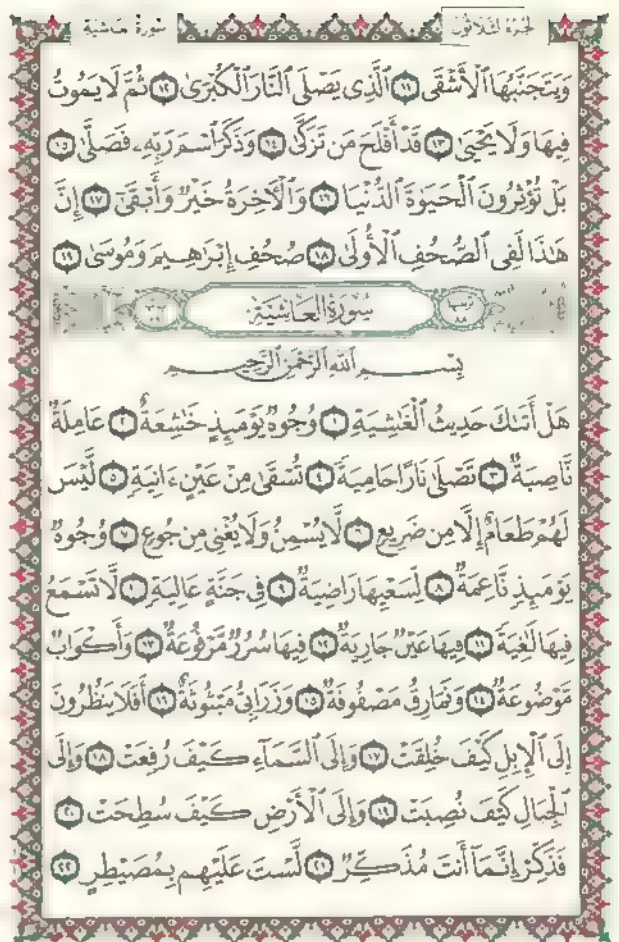 سورة الغاشية الجزء الثلاثون
وَيَتَجَنَّبُهَا ٱلْأَشْقَى ١١ ٱلَّذِى يَصْلَى ٱلنَّارَ ٱلْكُبْرَىٰ ١٢ ثُمَّ لَا يَمُوتُ
فِيهَا وَلَا يَحْيَىٰ ١٣ قَدْ أَفْلَحَ مَن تَزَكَّىٰ ١٤ وَذَكَرَ ٱسْمَ رَبِّهِۦ فَصَلَّىٰ ١٥
بَلْ تُؤْثِرُونَ ٱلْحَيَوٰةَ ٱلدُّنْيَا ١٦ وَٱلْأَخِرَةُ خَيْرٌ وَأَبْقَىٰٓ ١٧ إِنَّ
هَٰذَا لَفِى ٱلصُّحُفِ ٱلْأُولَىٰ ١٨ صُحُفِ إِبْرَٰهِيمَ وَمُوسَىٰ ١٩
ترتيبها ٨٨ سُورَةُ الغَاشِيَةِ
بِسْمِ ٱللَّهِ ٱلرَّحْمَٰنِ ٱلرَّحِيمِ
هَلْ أَتَىٰكَ حَدِيثُ ٱلْغَٰشِيَةِ ١ وُجُوهٌ يَوْمَئِذٍ خَٰشِعَةٌ ٢ عَامِلَةٌ
نَّاصِبَةٌ ٣ تَصْلَىٰ نَارًا حَامِيَةً ٤ تُسْقَىٰ مِنْ عَيْنٍ ءَانِيَةٍ ٥ لَّيْسَ
لَهُمْ طَعَامٌ إِلَّا مِن ضَرِيعٍ ٦ لَّا يُسْمِنُ وَلَا يُغْنِى مِن جُوعٍ ٧ وُجُوهٌ
يَوْمَئِذٍ نَّاعِمَةٌ ٨ لِّسَعْيِهَا رَاضِيَةٌ ٩ فِى جَنَّةٍ عَالِيَةٍ ١٠ لَّا تَسْمَعُ
فِيهَا لَٰغِيَةً ١١ فِيهَا عَيْنٌ جَارِيَةٌ ١٢ فِيهَا سُرُرٌ مَّرْفُوعَةٌ ١٣ وَأَكْوَابٌ
مَّوْضُوعَةٌ ١٤ وَنَمَارِقُ مَصْفُوفَةٌ ١٥ وَزَرَابِىُّ مَبْثُوثَةٌ ١٦ أَفَلَا يَنظُرُونَ
إِلَى ٱلْإِبِلِ كَيْفَ خُلِقَتْ ١٧ وَإِلَى ٱلسَّمَآءِ كَيْفَ رُفِعَتْ ١٨ وَإِلَى
ٱلْجِبَالِ كَيْفَ نُصِبَتْ ١٩ وَإِلَى ٱلْأَرْضِ كَيْفَ سُطِحَتْ ٢٠
فَذَكِّرْ إِنَّمَآ أَنتَ مُذَكِّرٌ ٢١ لَّسْتَ عَلَيْهِم بِمُصَيْطِرٍ ٢٢